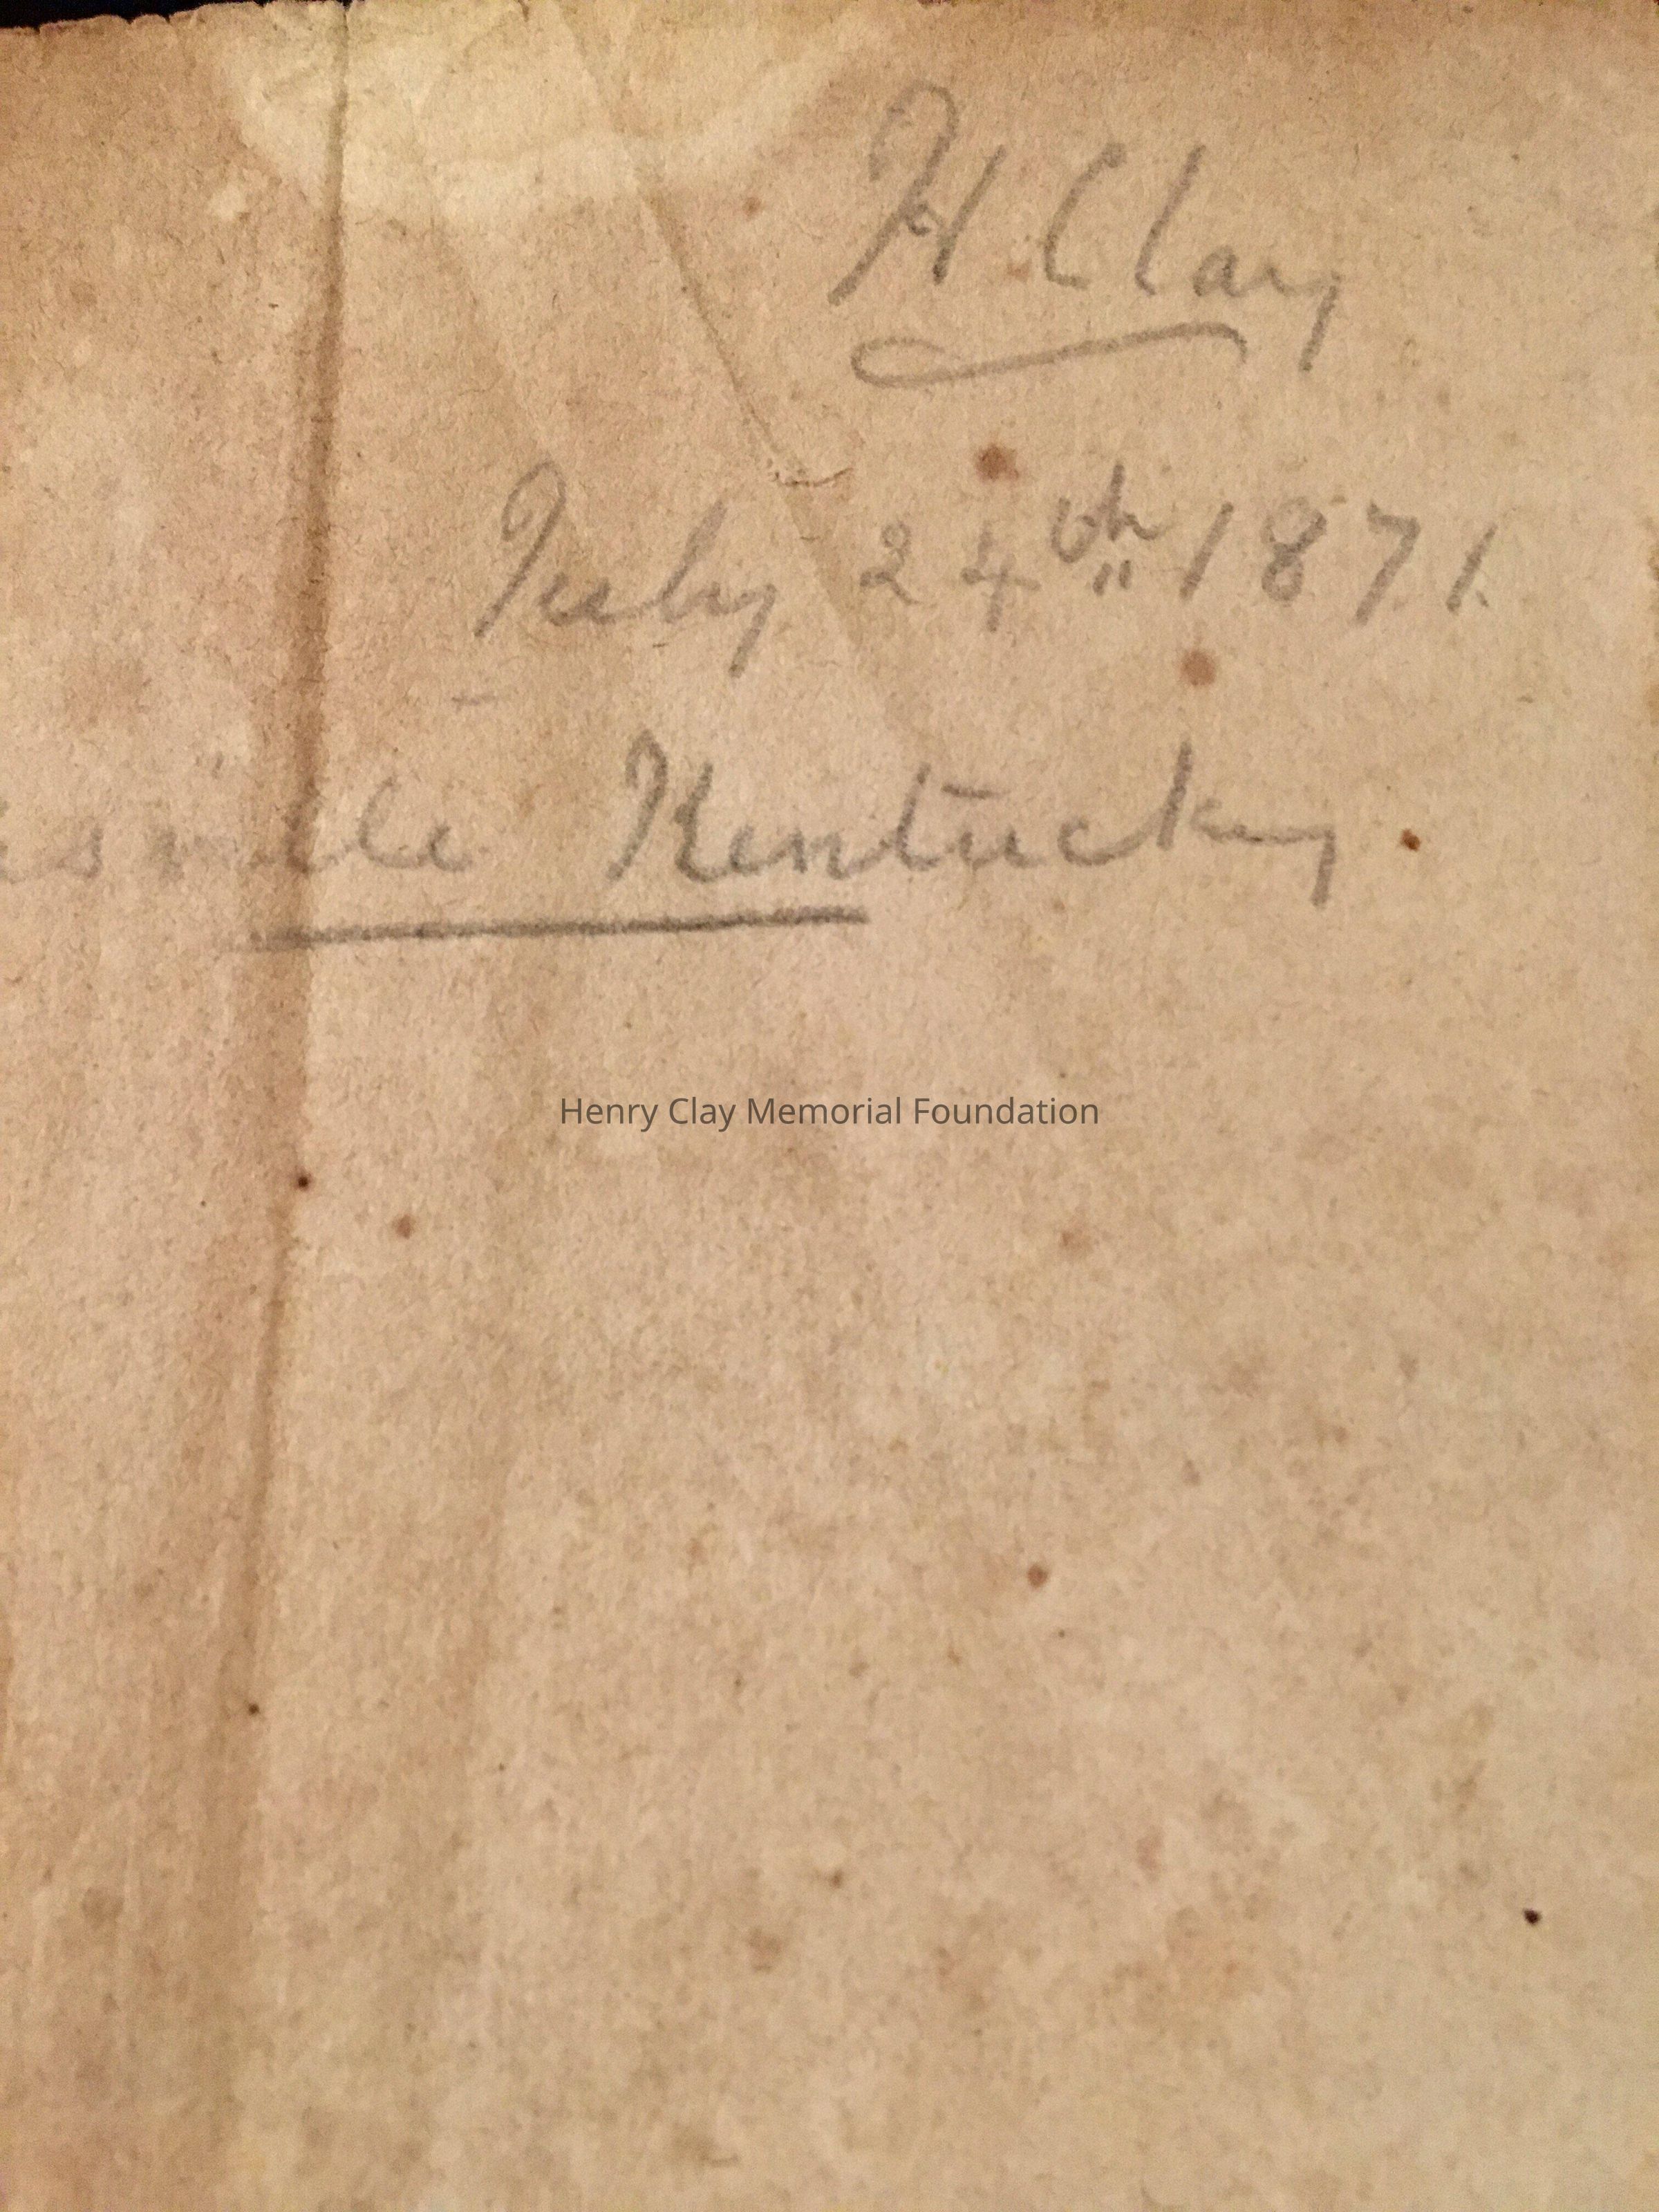 H Clay
July 24th 1871.
isville Kentucky.
Henry Clay Memorial Foundation